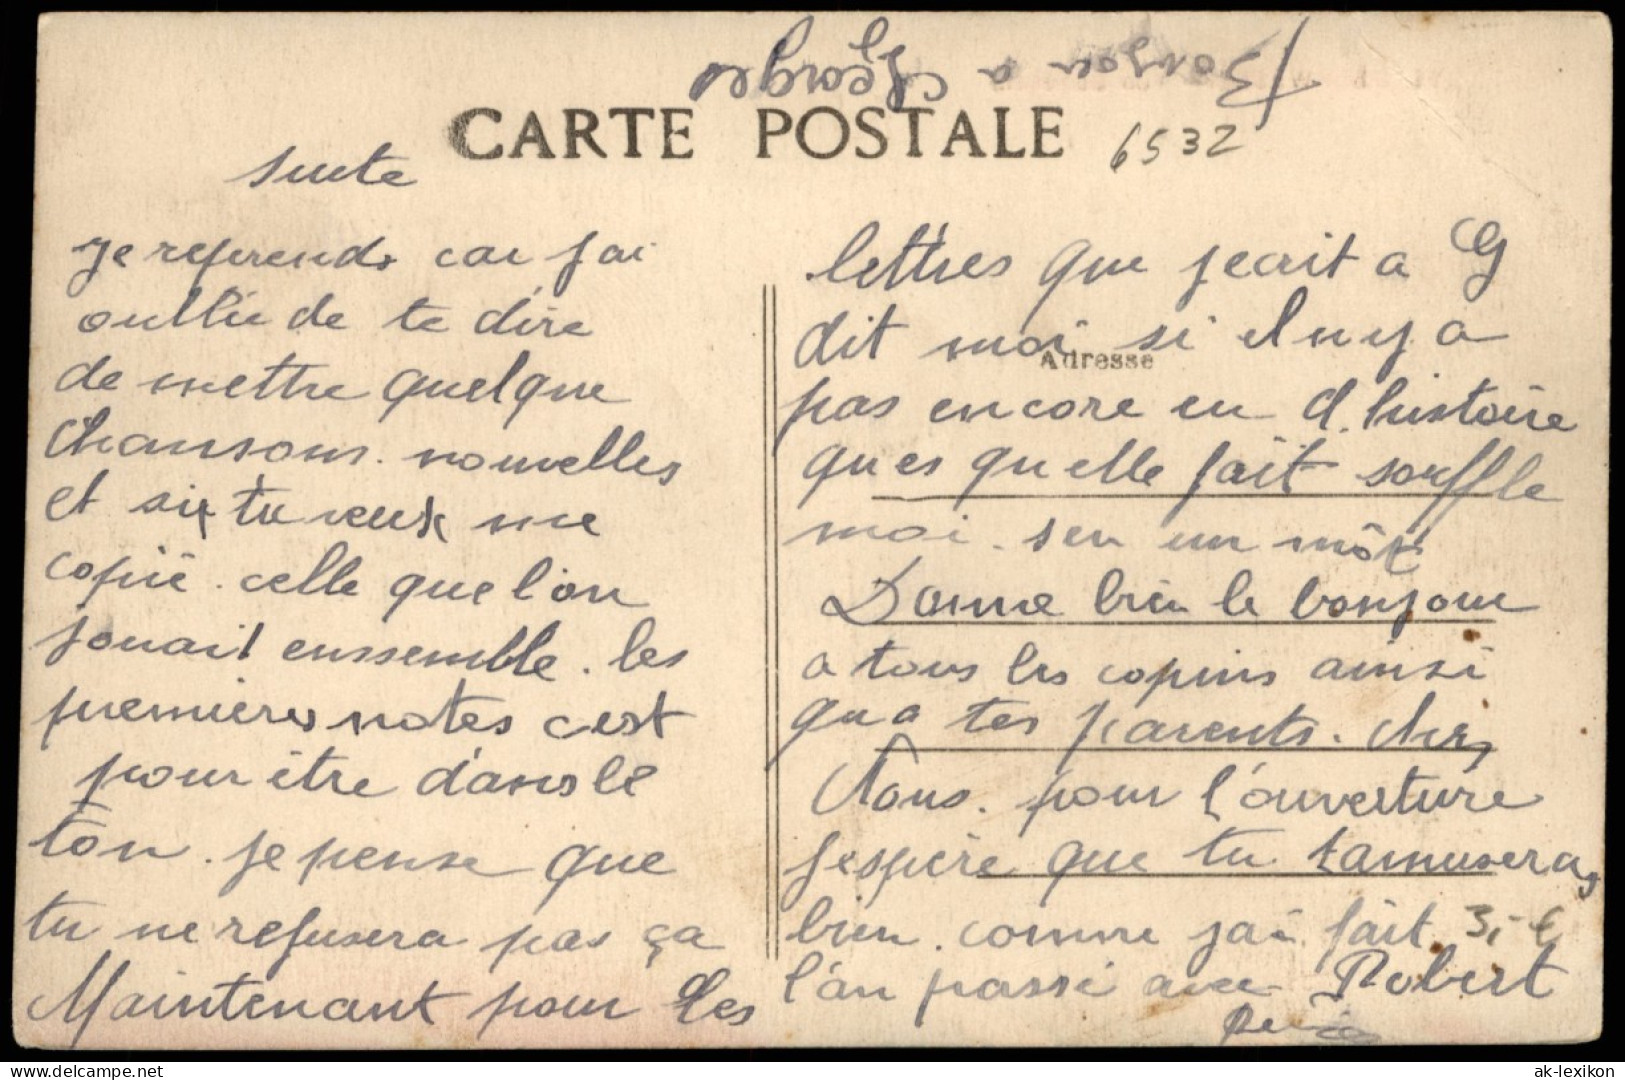 Bonjour a Georges
CARTE POSTALE
6532
suite
Je reprends car jai
oublié de te dire
de mettre quelque
chansons. nouvelles
et six tu veux me
copié. celle que l'on
jouait enssemble. les
premières notes c'est
pour être dans le
ton. je pense que
tu ne refusera pas ça
Maintenant pour les
lettres que jecrit a G
dit moi si il n y a
Adresse
pas encore eu d. histoire
ques qu elle fait souffle
moi. sen un môt
Donne bien le bonjour
a tous les copins ainsi
qu a tes parents. chez
Nous. pour l'ouverture
Jespère que tu tamusera
bien. comme jai fait
3,- €
l'an passé avec Robert
ak-lexikon
delcampe.net